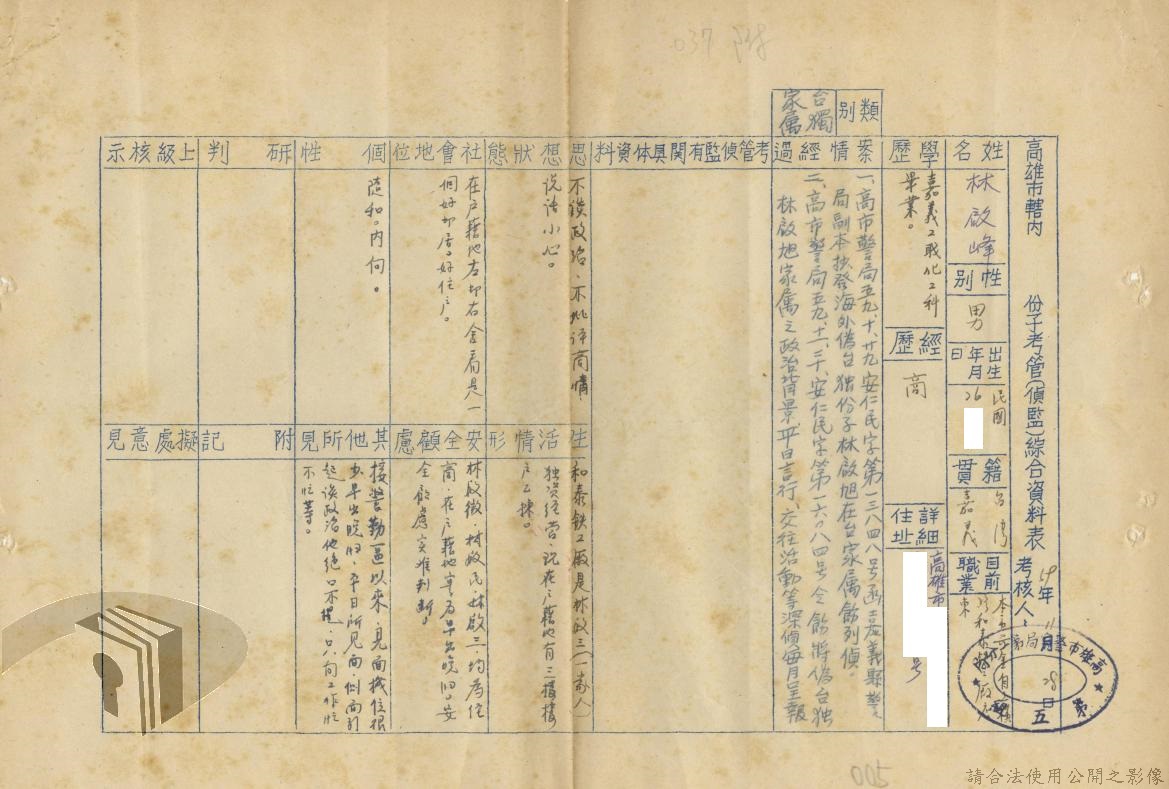 037 附
高雄市轄內　份子考管(偵監)綜合資料表
59年11月28日
考核人:
高雄市警察局
第五
姓名
林啟峰
性別
男
出生年月日
民國
26
籍貫
台灣
嘉義
目前職業
類別
台獨家属
學歷
嘉義工職化工科
畢業。
經歷
商
詳細住址
高雄市
号
案情經過
一、高市警局五九、十、廿九安仁民字第一三八四八号函嘉義縣警
局副本扶登海外偽台独份子林啟旭在台家属飭列偵。
二、高市警局五九、十一、三十、安仁民字第一六〇八四号令飭將偽台独
林啟旭家属之政治背景、平日言行、交往活動等深偵每月呈報
考管偵監有関具体資料
思想狀態
不談政治、不批评商情、
说话小心。
社會地位
在户籍地左邻右舍看是一
個好邻居。好住户。
個性
随和。内向。
研判
上級核示
生活情形
和泰鉄工廠是林啟三(一家人)
独資經营、現在户籍地有三楼楼
户乙棟。
安全顧慮
林啟徵、林啟民、林啟三、均為經
商、在户籍地车為早出晚归。安
全顧慮实难判斷。
其他所見
接警勤區以來，見面找位很
少早出晚归、平日所見面、側面引
起谈政治他绝口不提、只有工作忙
不忙等。
附記
擬處意見
005
請合法使用公開之影像